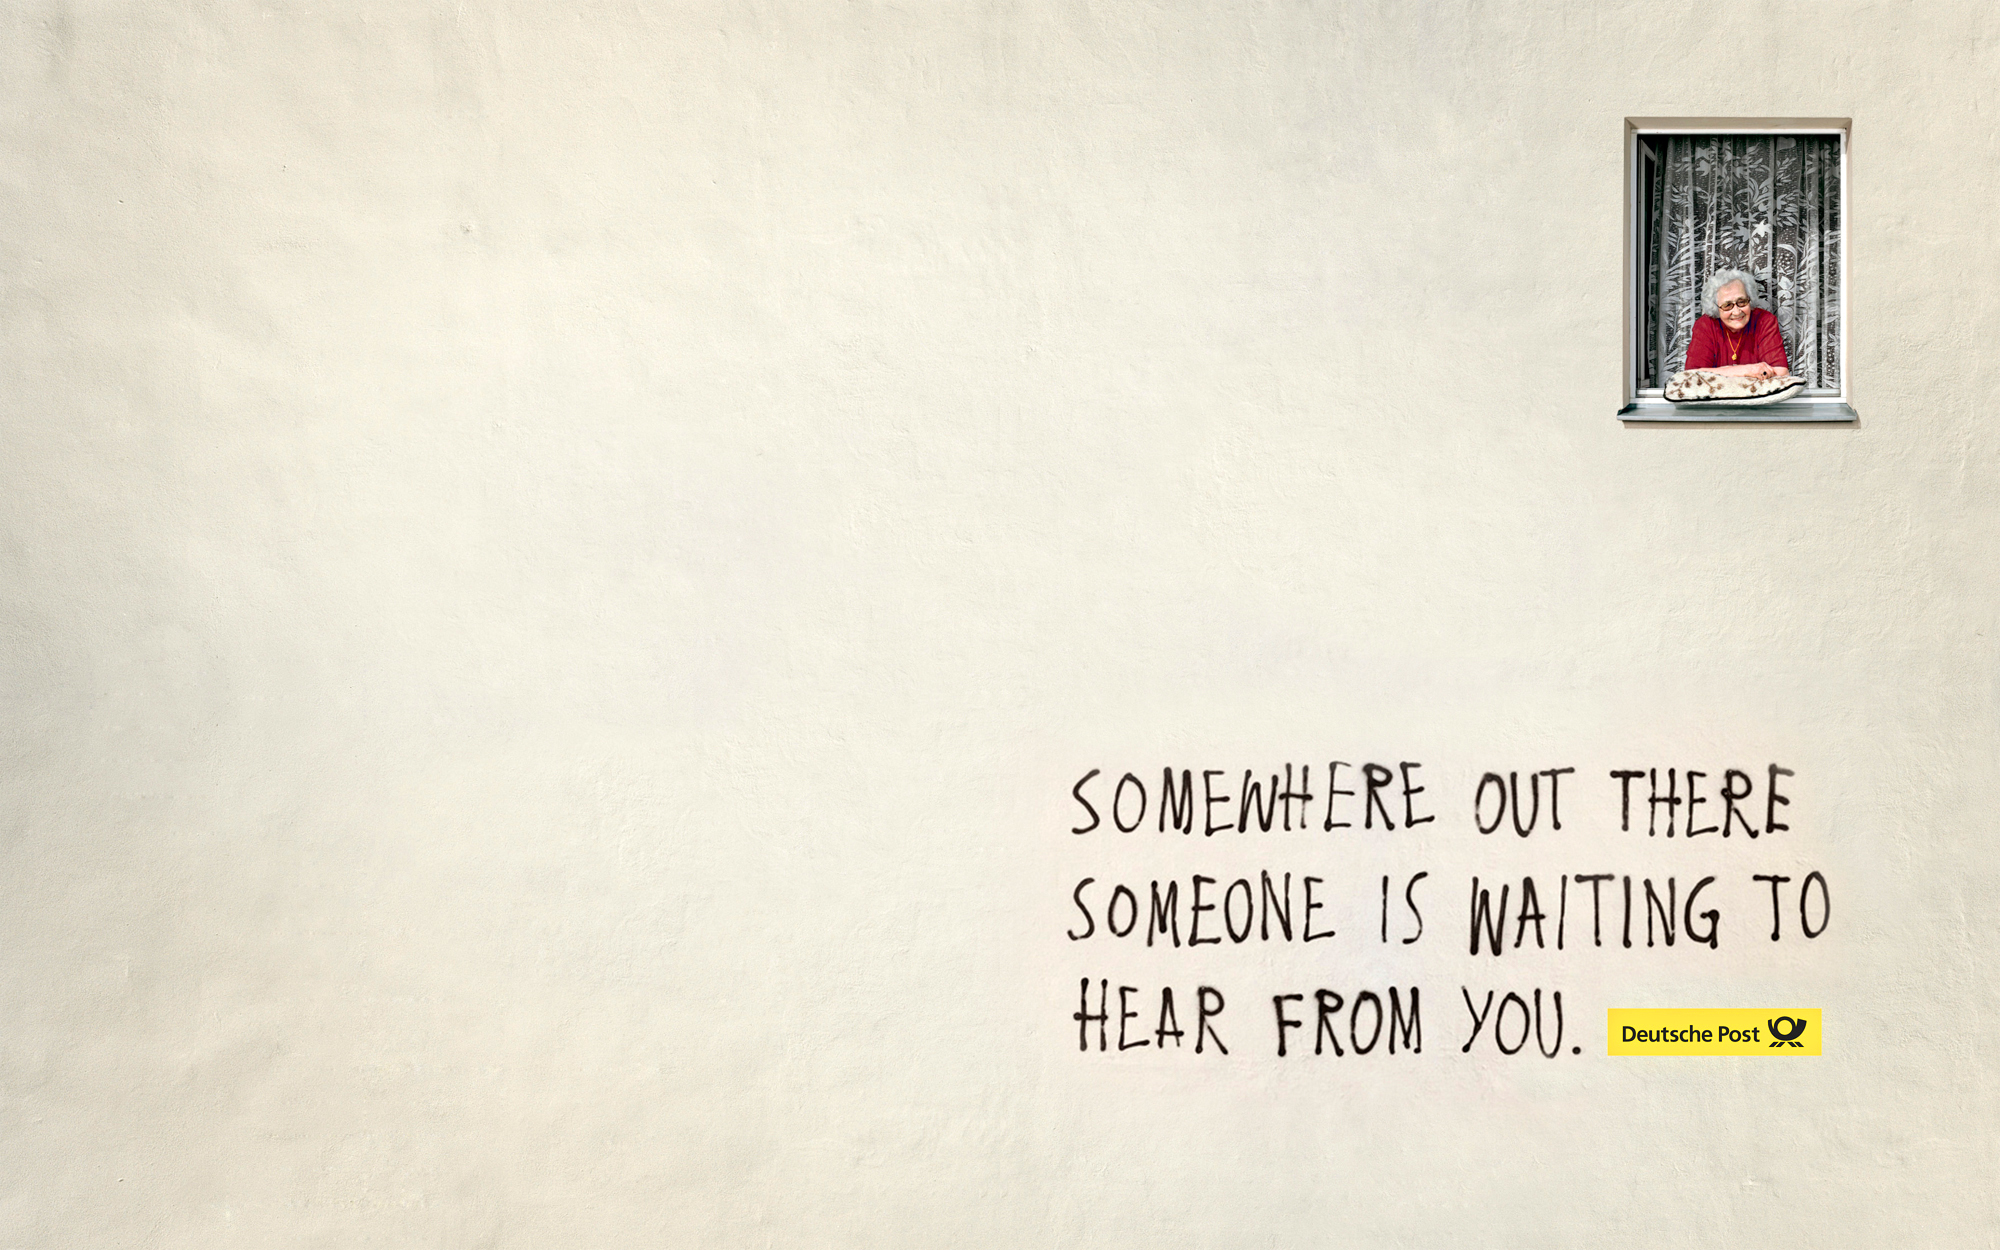 SOMEWHERE OUT THERE
SOMEONE IS WAITING TO
HEAR FROM YOU.
Deutsche Post